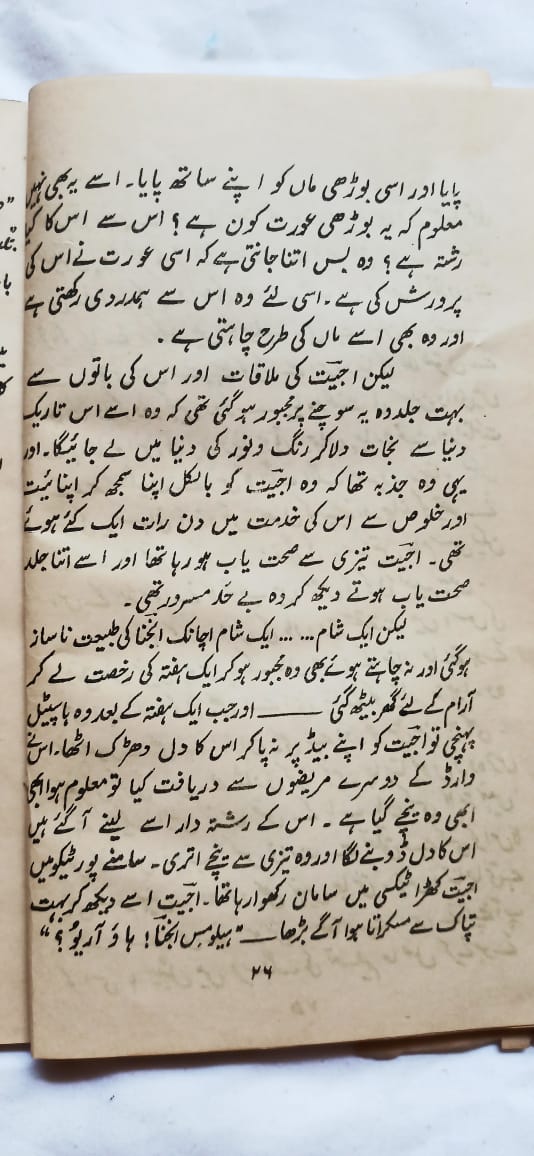 پایا اور اسی بوڑھی ماں کو اپنے ساتھ پایا۔ اسے یہ بھی نہیں
معلوم کہ یہ بوڑھی عورت کون ہے؟ اس سے اس کا کیا
رشتہ ہے؟ وہ بس اتنا جانتی ہے کہ اسی عورت نے اس کی
پرورش کی ہے۔ اسی لئے وہ اس سے ہمدردی رکھتی ہے
اور وہ بھی اسے ماں کی طرح چاہتی ہے۔
لیکن اجیت کی ملاقات اور اس کی باتوں سے
بہت جلد وہ یہ سوچنے پر مجبور ہو گئی تھی کہ وہ اسے اس تاریک
دنیا سے نجات دلا کر رنگ و نور کی دنیا میں لے جائیگا۔ اور
یہی وہ جذبہ تھا کہ وہ اجیت کو بالکل اپنا سمجھ کر اپنائیت
اور خلوص سے اس کی خدمت میں دن رات ایک کئے ہوئے
تھی۔ اجیت تیزی سے صحت یاب ہو رہا تھا اور اسے اتنا جلد
صحت یاب ہوتے دیکھ کر وہ بے حد مسرور تھی۔
لیکن ایک شام ... ... ایک شام اچانک انجنا کی طبیعت ناساز
ہو گئی اور نہ چاہتے ہوئے بھی وہ مجبور ہو کر ایک ہفتہ کی رخصت لے کر
آرام کے لئے گھر بیٹھ گئی ——— اور جب ایک ہفتہ کے بعد وہ ہاسپیٹل
پہنچی تو اجیت کو اپنے بیڈ پر نہ پا کر اس کا دل دھڑک اٹھا۔ اس نے
وارڈ کے دوسرے مریضوں سے دریافت کیا تو معلوم ہوا ابھی
ابھی وہ نیچے گیا ہے۔ اس کے رشتہ دار اسے لینے آ گئے ہیں
اس کا دل ڈوبنے لگا اور وہ تیزی سے نیچے اتری۔ سامنے پورٹیکو میں
اجیت کھڑا ٹیکسی میں سامان رکھوا رہا تھا۔ اجیت اسے دیکھ کر بہت
تپاک سے مسکراتا ہوا آگے بڑھا — "ہیلو مس انجنا! ہاؤ آر یو؟"
۲۶